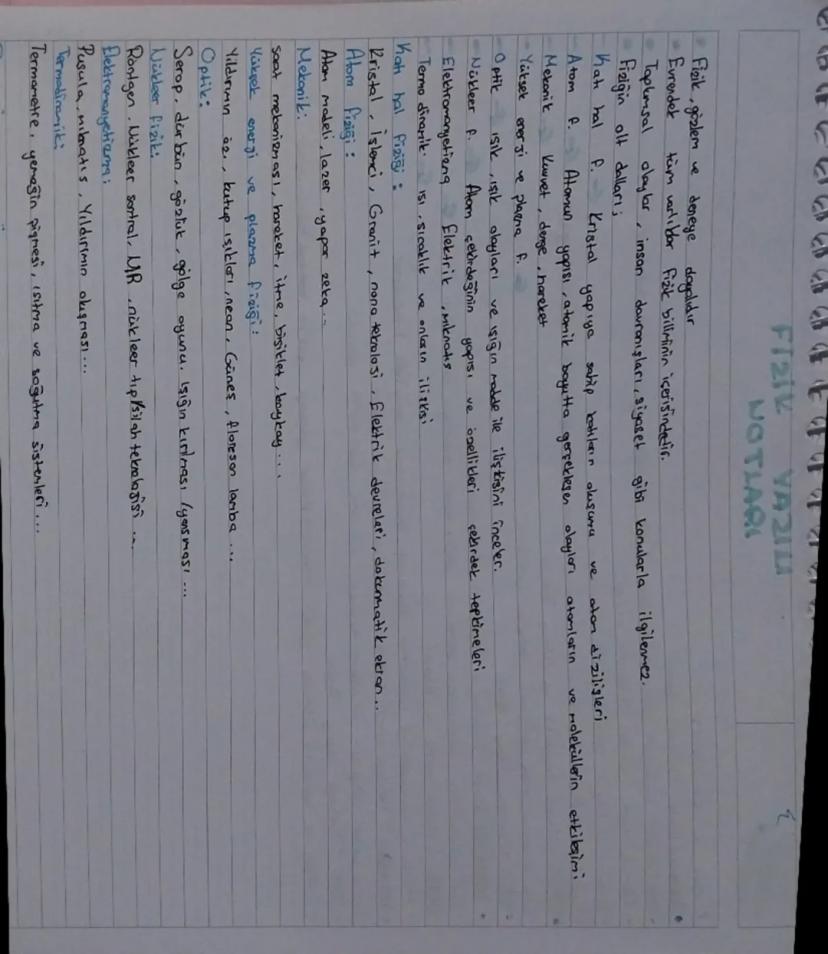 FİZİK YAZILI
NOTLARI
Fizik, gözlem ve deneye dayalıdır
Evrendeki tüm varlıklar fizik biliminin içerisindedir.
Toplumsal olaylar, insan davranışları, siyaset gibi konularla ilgilenmez.
Fiziğin alt dalları;
Katı hal f. Kristal yapıya sahip katıların oluşumu ve atom dizilişleri
Atom f. Atomun yapısı, atomik boyutta gerçekleşen olayları atomların ve moleküllerin etkileşimi
Mekanik Kuvvet, denge, hareket
Yüksek enerji ve plazma f.
Optik ışık, ışık olayları ve ışığın madde ile ilişkisini inceler.
Nükleer f. Atom çekirdeğinin yapısı ve özellikleri çekirdek tepkimeleri
Elektromanyetizma Elektrik, mıknatıs
Termodinamik: ısı, sıcaklık ve onların ilişkisi
Katı hal fiziği:
Kristal, İşlemci, Granit, nano teknoloji, Elektrik devreleri, dokunmatik ekran..
Atom fiziği:
Atom modeli, lazer, yapay zeka...
Mekanik:
saat mekanizması, hareket, itme, bisiklet, kaykay...
Yüksek enerji ve plazma fiziği:
Yıldırımın özü, kutup ışıkları, neon, Güneş, floresan lamba...
Optik:
Serap, dürbün, gözlük, gölge oyunu. Işığın kırılması/yansıması...
Nükleer fizik:
Röntgen, Nükleer santral, MR, nükleer tıp/silah teknolojisi...
Elektromanyetizma:
Pusula, mıknatıs, Yıldırımın oluşması...
Termodinamik:
Termometre, yemeğin pişmesi, ısıtma ve soğutma sistemleri...